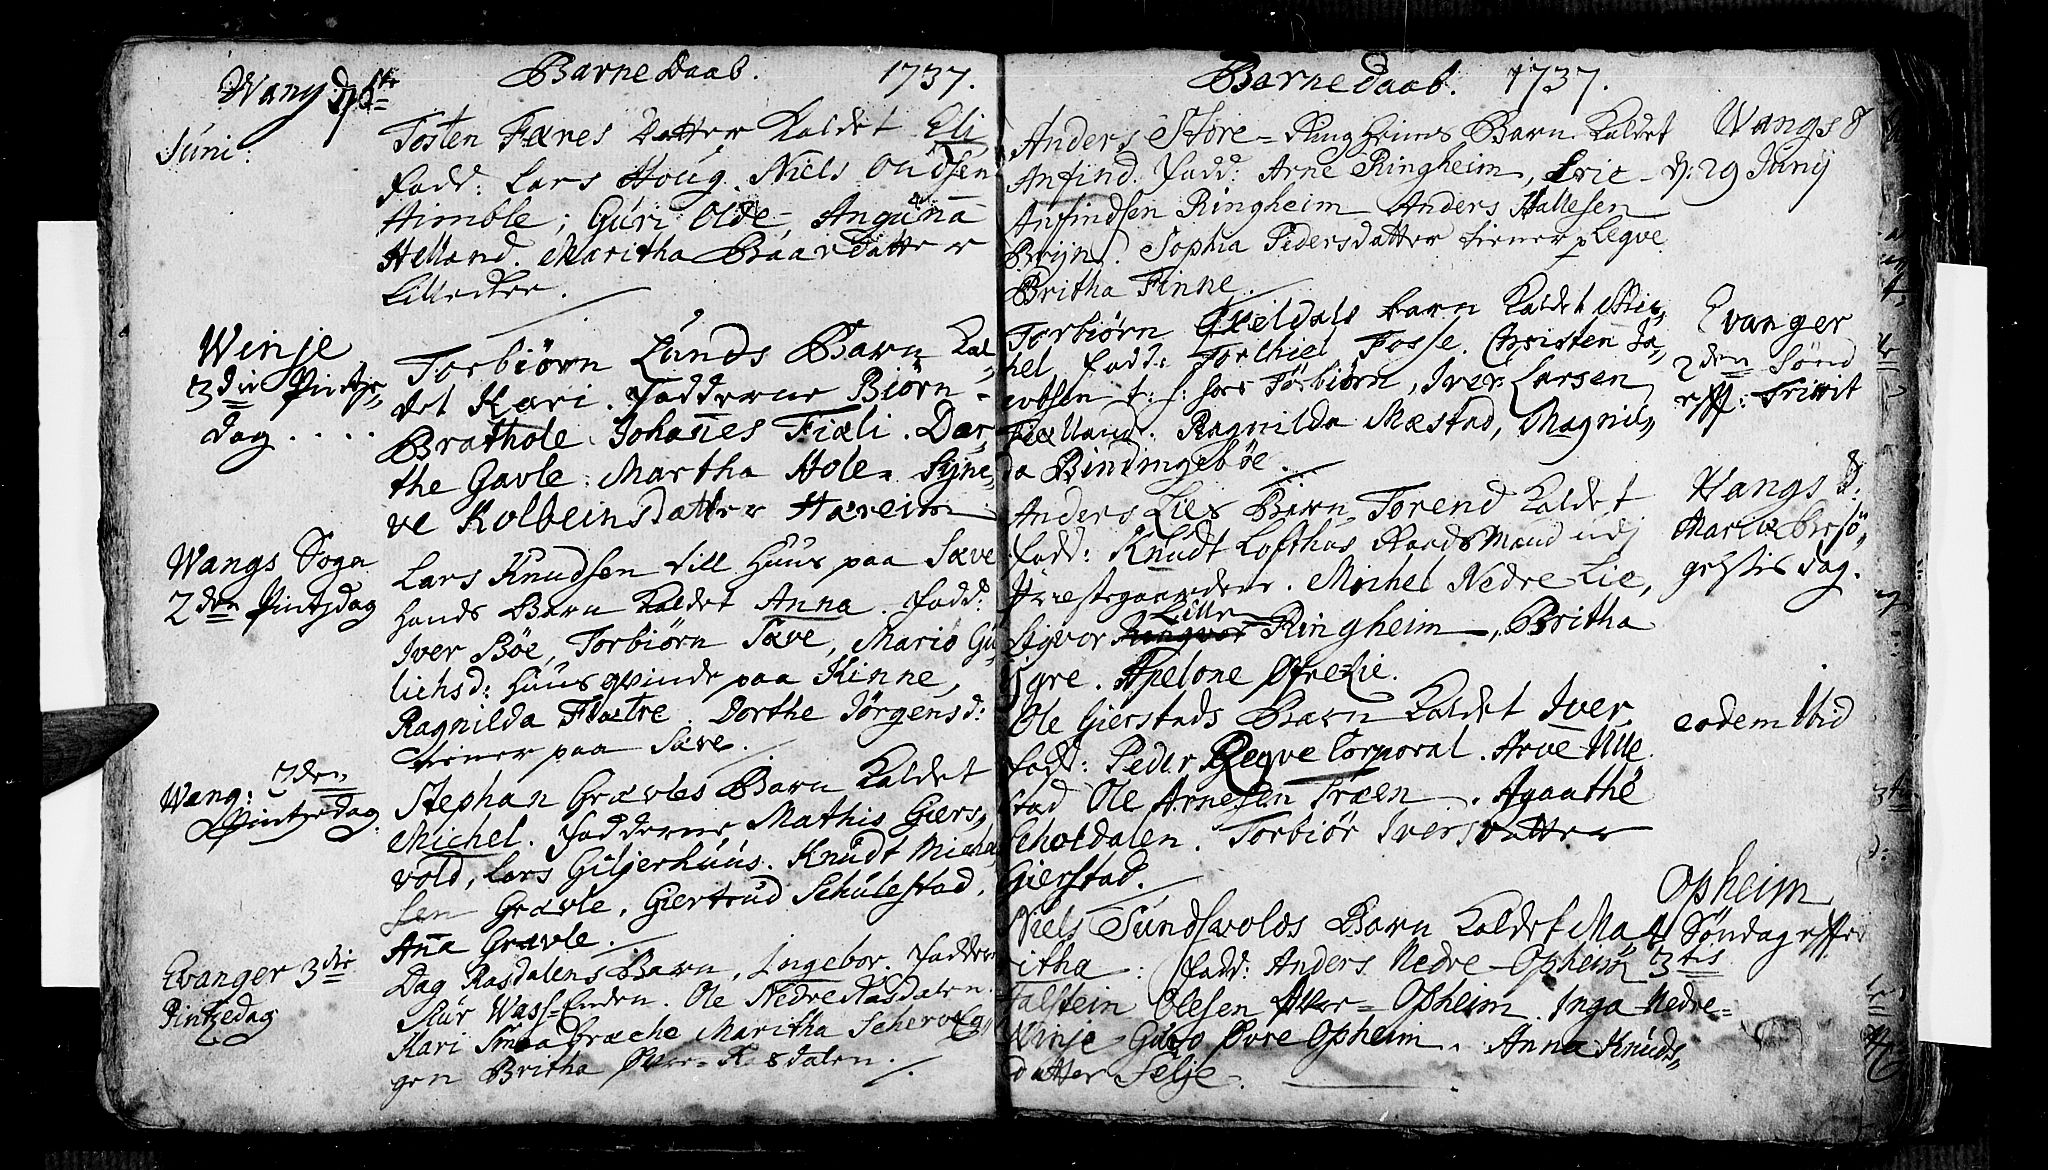 Barne Daab. 1737.
Wang d.
Juni:
Tosten Fænes Datter kaldet Eli
Fadd: Lars Houg. Niels Oudsen
Himble; Guri Olde, Anguna
Helland. Maritha Baarsdatter
Lilleethe.
Winje
3die Pintze
dag....
Torbiørn Lunds Barn kal
det Kari. Fadderne Biørn
Brathole. Johanes Fiæli. Dor
the Gavle. Martha Hole. Syne
ve Kolbeinsdatter Hæreim
Wangs Sogn
2den Pintzdag
Lars Knudsen till huus paa Sæve
hands Barn kaldet Anna. Fadd:
Iver Bøe, Torbiørn Sæve, Mario Gu
lichsd: huusqvinde paa Kinne,
Ragnilda Flatre. Dorthe Jørgensd:
tiener paa Sæve.
Wang: 2den
Pintzedag.
Stephan Grævles Barn kaldet
Michel. Fadderne Mathis Giers
vold, Lars Giljerhuus. Knudt Michel
sen Grævle, Giertrud Schulestad,
Anna Grævle.
Evanger 3die
Pintzedag
Dag Rasdalens Barn, Ingebor. Fadder
Siur Wass-Enden. Ole Nedre Rasdalen.
Kari Smaabræche Maritha Scherveg
gen Britha Øvre-Rasdalen.
Barne daab. 1737.
Anders Store-Ringheims Barn kaldet
Anfind. Fadd: Arne Ringheim, Eric
Anfindsen Ringheim Anders Hallesen
Bryn. Sophia Pedersdatter tiener p Regve
Britha Finne.
Wangs
d: 29 Junij
Torbiørn Qveldals barn kaldet Mic
hel, fadd: Torchiel Fosse. Christen Ja
cobsen t: h: hos Torbiørn, Iver Larsen
Fiælland. Ragnilda Mæstad, Magnil
da Bindingebøe.
Evanger
2den Sønd
eff: Trinit
Anders Lies Barn Torend kaldet
Fadd: Knudt Lofthus Raadsmand udj
Præstegaardene. Michel Nedre Lie,
Sigvor Lille Ringheim, Britha
Ygre. Apelone Øfre Lie.
Wangs d:
Mariæ besø
gelsis dag.
Ole Gierstads Barn kaldet Iver
fadd: Peder Regve Corporal. Arve Ulle
stad Ole Arnesen Træen. Agaathe
Scholdalen. Torbiør Iversdatter
Gierstad.
eodem Ibid
Niels Sundsvolds Barn kaldet Ma
ritha: fadd: Anders Nedre-Opheim
Halstein Olesen Øvre-Opheim. Inga Nedre-
Winje Guro Øvre Opheim. Anna Knuds
datter Selje.
Opheim
4 Søndag effter
3tis